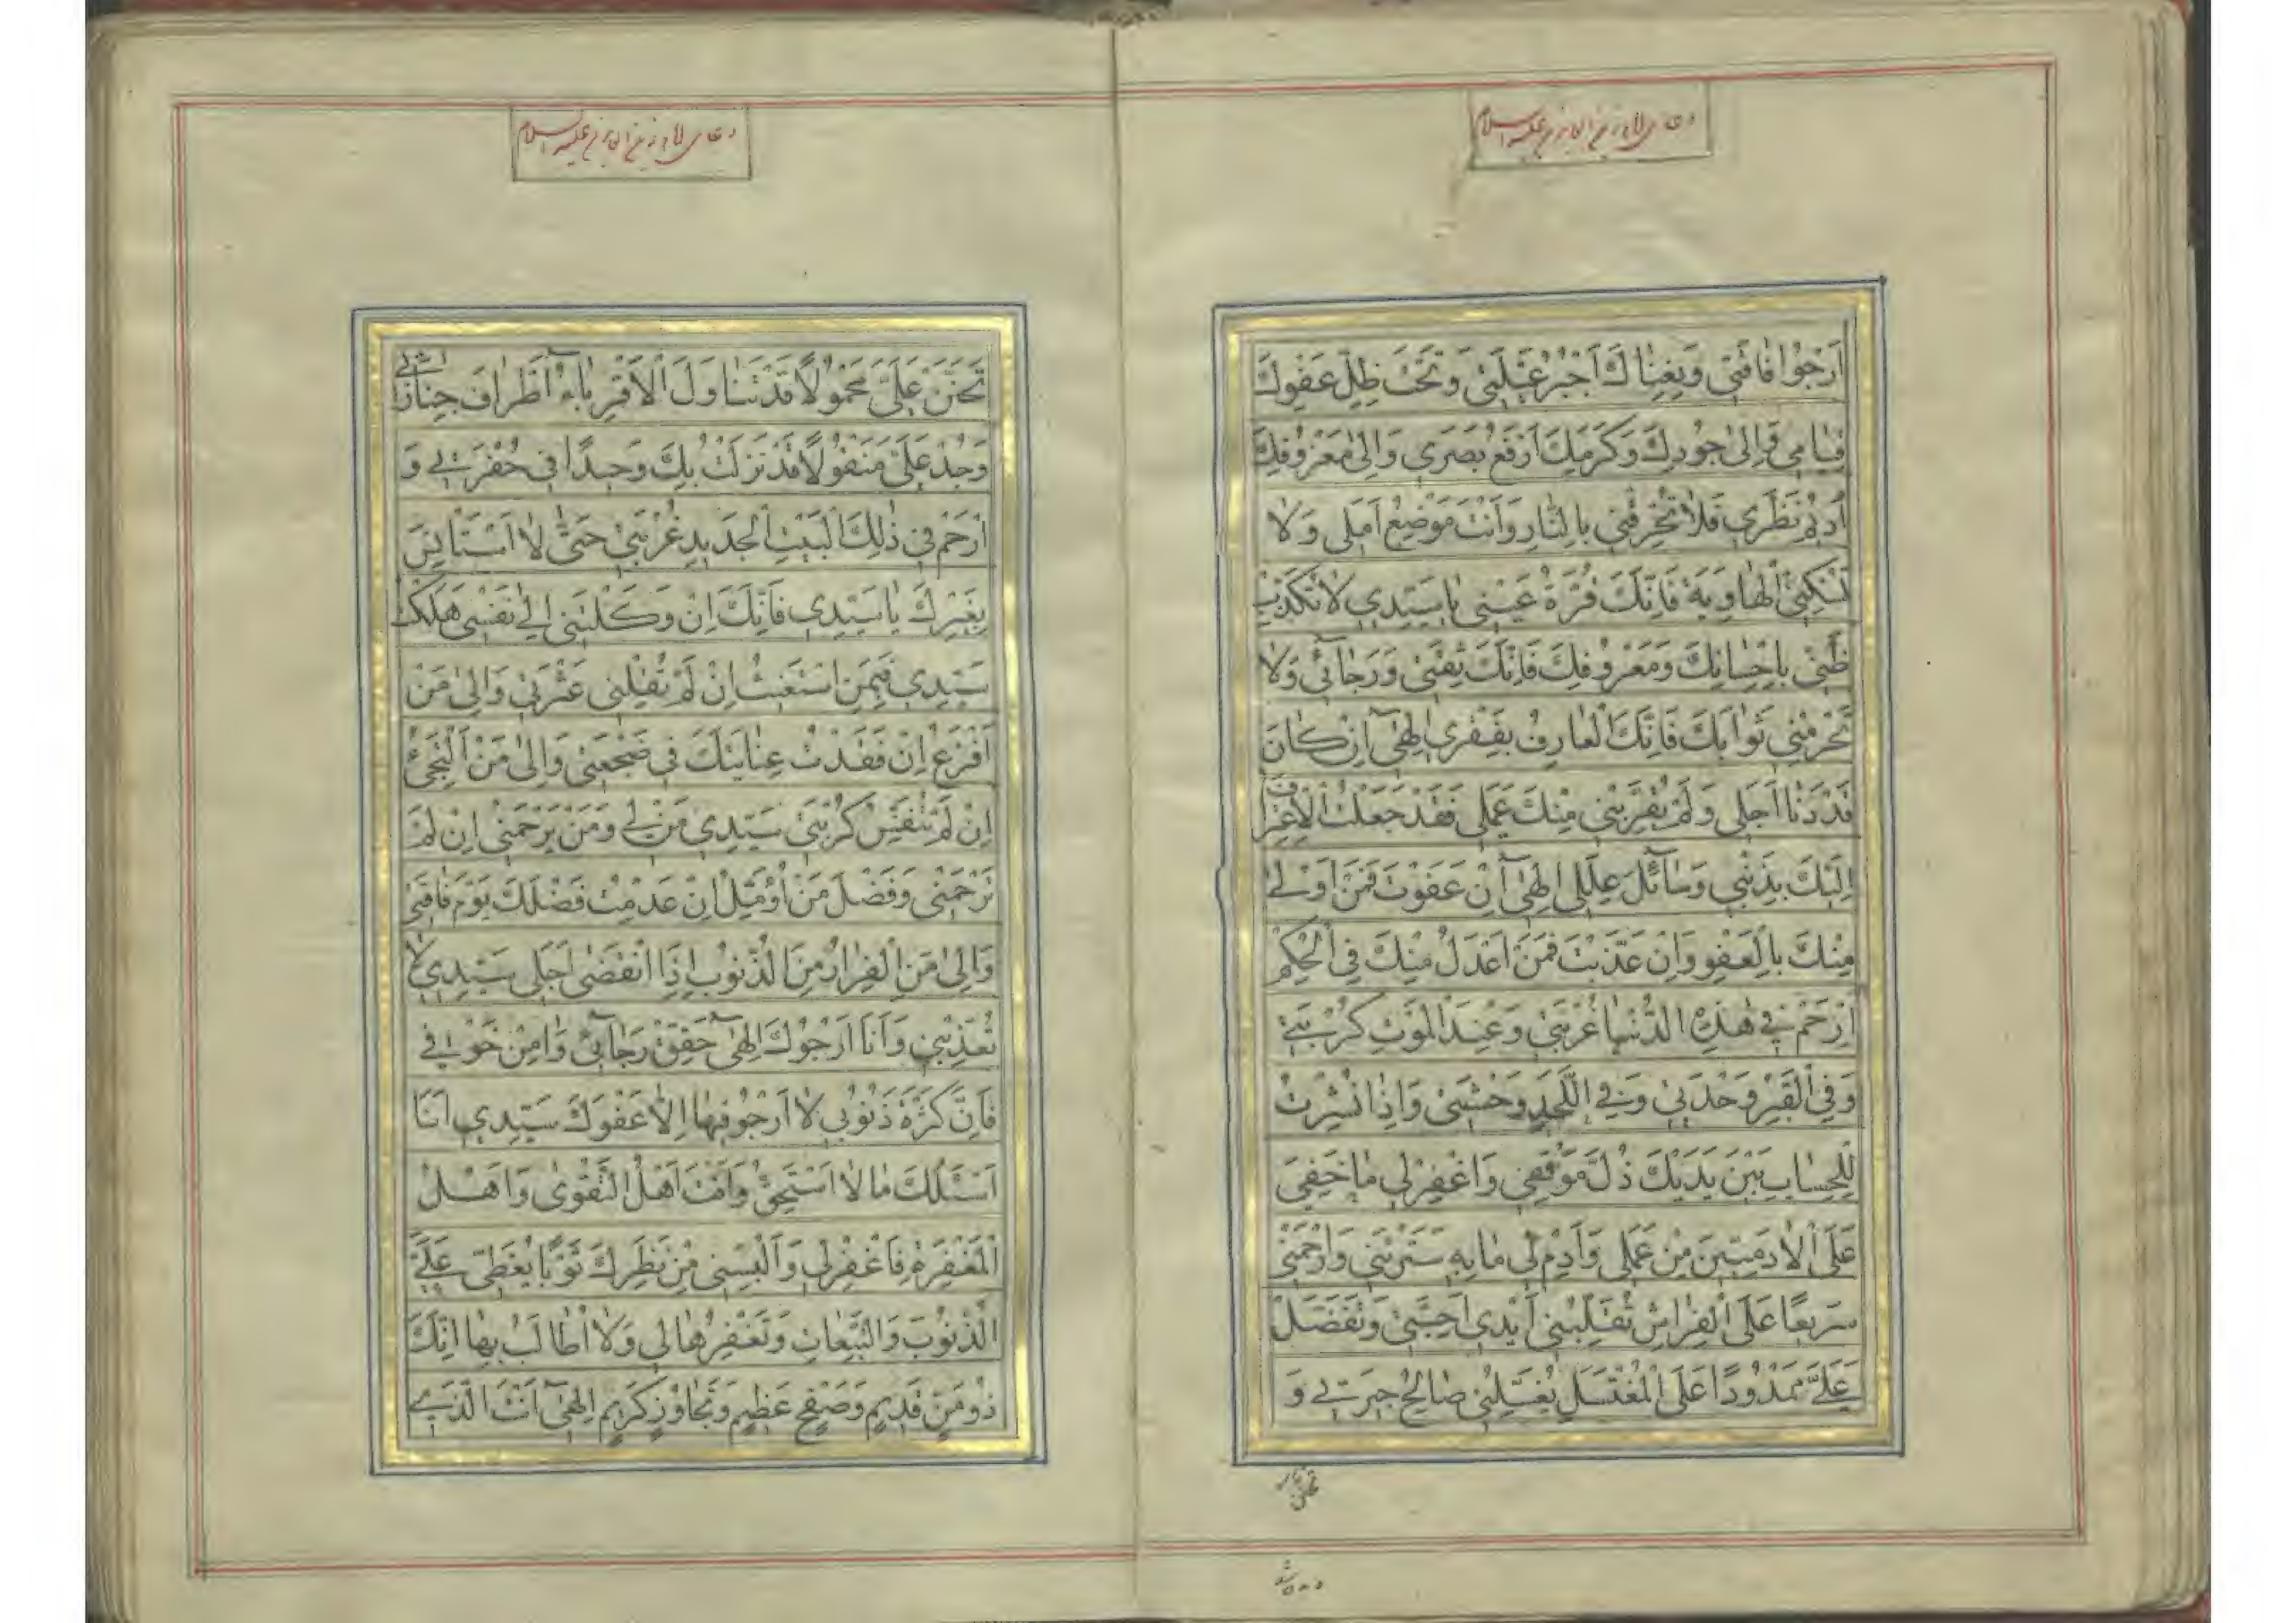 دعای امام زین العابدین علیه السلام
اَرْجُوا فاقَتی وَبِغِناكَ اَجْبُرُ عَیْلَتی وَتَحْتَ ظِلِّ عَفْوِكَ
قِیامی وَاِلیٰ جُودِكَ وَكَرَمِكَ اَرْفَعُ بَصَری وَاِلیٰ مَعْرُوفِكَ
اُدیمُ نَظَری فَلا تُحْرِقْنی بِالنّارِ وَاَنْتَ مَوْضِعُ اَمَلی وَلا
تُسْكِنِّی الْهاوِیَةَ فَاِنَّكَ قُرَّةُ عَیْنی یا سَیِّدی لا تُكَذِّبْ
ظَنّی بِاِحْسانِكَ وَمَعْرُوفِكَ فَاِنَّكَ ثِقَتی وَرَجآئی وَلا
تَحْرِمْنی ثَوابَكَ فَاِنَّكَ الْعارِفُ بِفَقْری اِلٰهی اِنْ كانَ
قَدْ دَنا اَجَلی وَلَمْ یُقَرِّبْنی مِنْكَ عَمَلی فَقَدْ جَعَلْتُ الْاِعْتِرافَ
اِلَیْكَ بِذَنْبی وَسآئِلَ عِلَلی اِلٰهی اِنْ عَفَوْتَ فَمَنْ اَوْلیٰ
مِنْكَ بِالْعَفْوِ وَاِنْ عَذَّبْتَ فَمَنْ اَعْدَلُ مِنْكَ فِی الْحُكْمِ
اِرْحَمْ فی هٰذِهِ الدُّنْیا غُرْبَتی وَعِنْدَ الْمَوْتِ كُرْبَتی
وَفِی الْقَبْرِ وَحْدَتی وَفِی اللَّحْدِ وَحْشَتی وَاِذا نُشِرْتُ
لِلْحِسابِ بَیْنَ یَدَیْكَ ذُلَّ مَوْقِفی وَاغْفِرْ لی ما خَفِیَ
عَلَی الْآدَمِیّینَ مِنْ عَمَلی وَاَدِمْ لی ما بِهِ سَتَرْتَنی وَارْحَمْنی
سَریعًا عَلَی الْفِراشِ تُقَلِّبُنی اَیْدی اَحِبَّتی وَتَفَضَّلْ
عَلَیَّ مَمْدُودًا عَلَی الْمُغْتَسَلِ یُغَسِّلُنی صالِحُ جیرَتی وَ
دعای امام زین العابدین علیه السلام
تَحَنَّنْ عَلَیَّ مَحْمُولًا قَدْ تَناوَلَ الْاَقْرِبآءُ اَطْرافَ جِنازَتی
وَجُدْ عَلَیَّ مَنْقُولًا قَدْ نَزَلْتُ بِكَ وَحیدًا فی حُفْرَتی وَ
ارْحَمْ فی ذٰلِكَ الْبَیْتِ الْجَدیدِ غُرْبَتی حَتّیٰ لا اَسْتَانِسَ
بِغَیْرِكَ یا سَیِّدی فَاِنَّكَ اِنْ وَكَلْتَنی اِلیٰ نَفْسی هَلَكْتُ
سَیِّدی فَبِمَنِ اسْتَغیثُ اِنْ لَمْ تُقِلْنی عَثْرَتی وَاِلیٰ مَنْ
اَفْزَعُ اِنْ فَقَدْتُ عِنایَتَكَ فی ضَجْعَتی وَاِلیٰ مَنْ اَلْتَجِیُ
اِنْ لَمْ تُنَفِّسْ كُرْبَتی سَیِّدی مَنْ لی وَمَنْ یَرْحَمُنی اِنْ لَمْ
تَرْحَمْنی وَفَضْلَ مَنْ اُؤَمِّلُ اِنْ عَدِمْتُ فَضْلَكَ یَوْمَ فاقَتی
وَاِلیٰ مَنِ الْفِرارُ مِنَ الذُّنُوبِ اِذَا انْقَضیٰ اَجَلی سَیِّدی لا
تُعَذِّبْنی وَاَنَا اَرْجُوكَ اِلٰهی حَقِّقْ رَجآئی وَامِنْ خَوْفی
فَاِنَّ كَثْرَةَ ذُنُوبی لا اَرْجُو فیها اِلّا عَفْوَكَ سَیِّدی اَنَا
اَسْئَلُكَ ما لا اَسْتَحِقُّ وَاَنْتَ اَهْلُ التَّقْویٰ وَاَهْلُ
الْمَغْفِرَةِ فَاغْفِرْ لی وَاَلْبِسْنی مِنْ نَظَرِكَ ثَوْبًا یُغَطّی عَلَیَّ
الذُّنُوبَ وَالتَّبِعاتِ وَتَغْفِرُها لی وَلا اُطالَبُ بِها اِنَّكَ
ذُو مَنٍّ قَدیمٍ وَصَفْحٍ عَظیمٍ وَتَجاوُزٍ كَریمٍ اِلٰهی اَنْتَ الَّذی